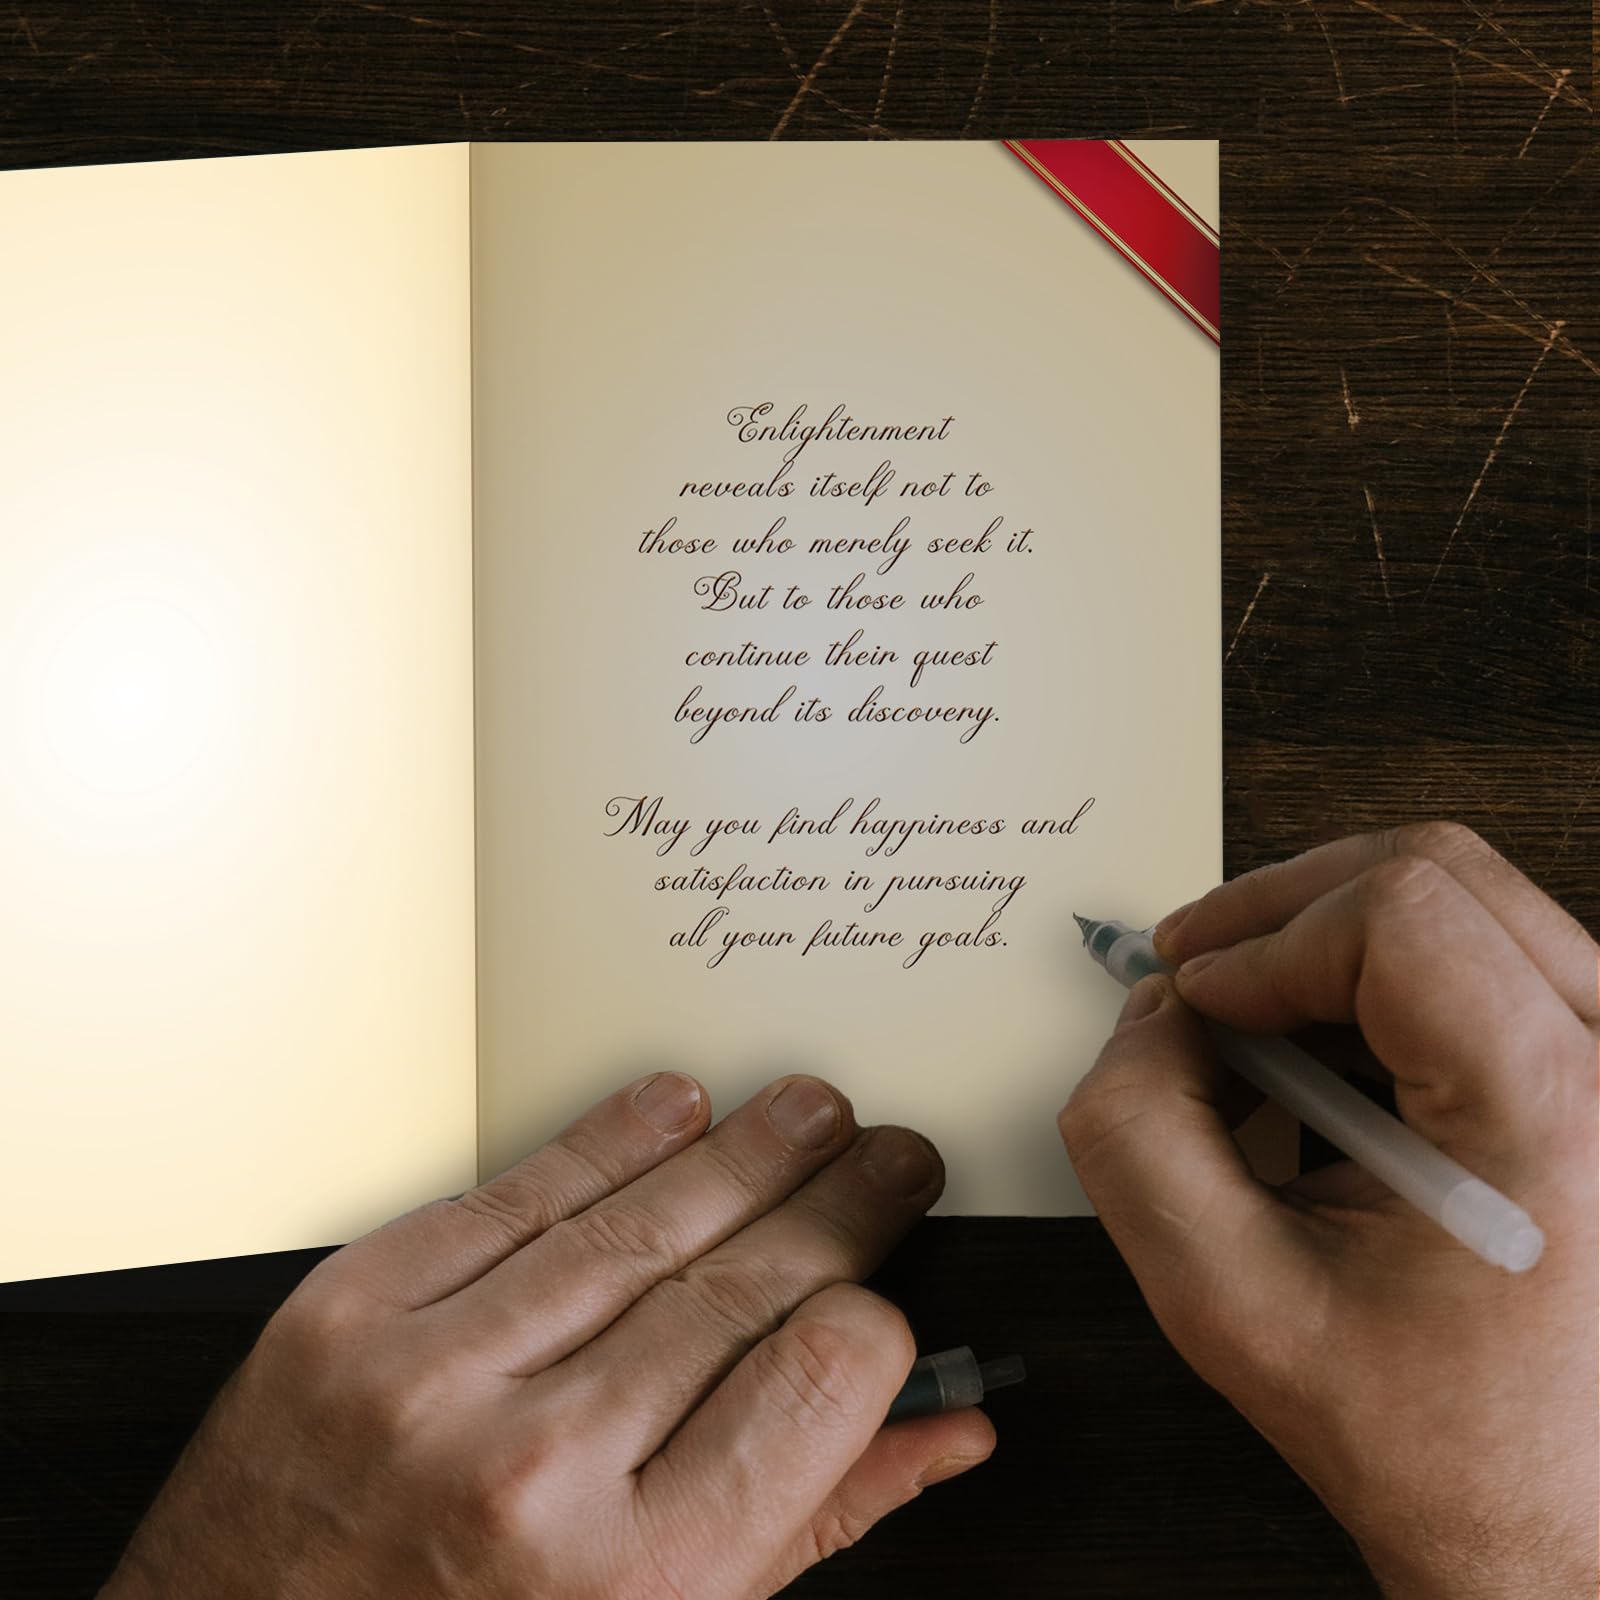 Enlightenment
reveals itself not to
those who merely seek it.
But to those who
continue their quest
beyond its discovery.
May you find happiness and
satisfaction in pursuing
all your future goals.